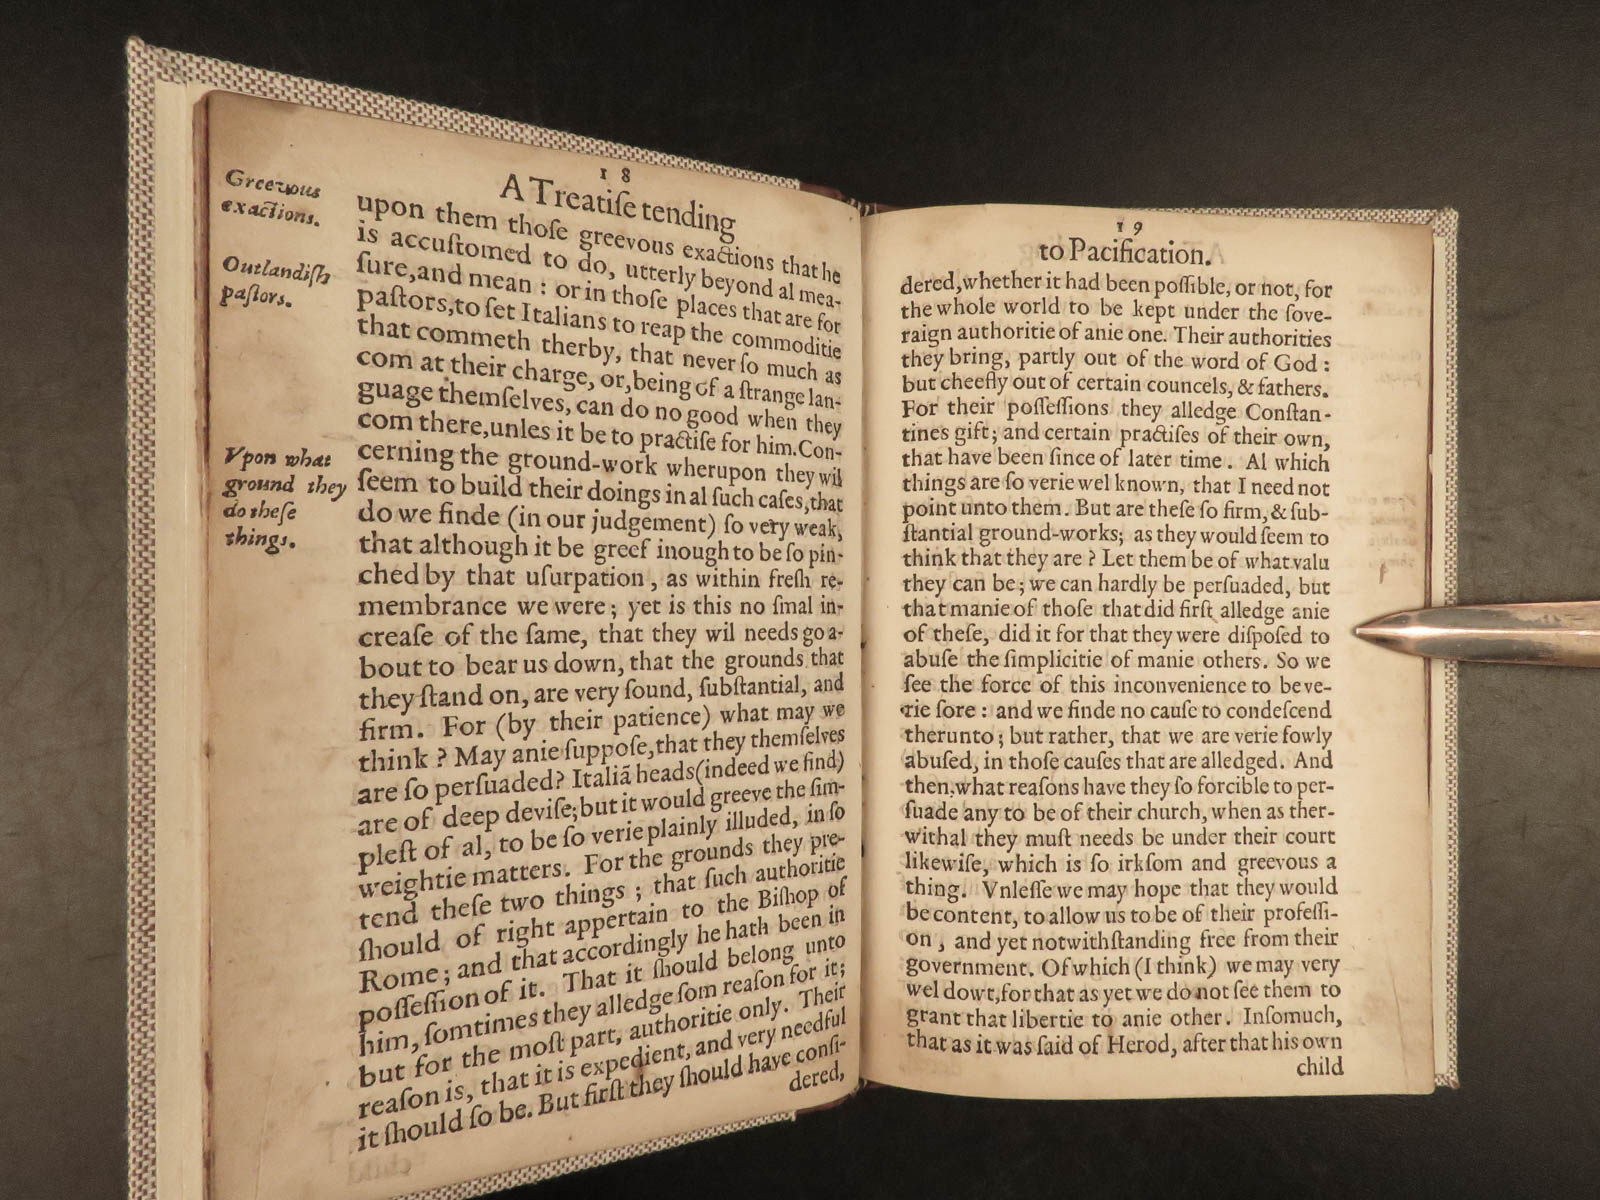 18
A Treatiſe tending
Greevous
exactions.
Outlandiſh
paſtors.
Vpon what
ground they
do theſe
things.
upon them thoſe greevous exactions that he
is accuſtomed to do, utterly beyond al mea-
ſure, and mean : or in thoſe places that are for
paſtors, to ſet Italians to reap the commoditie
that commeth therby, that never ſo much as
com at their charge, or, being of a ſtrange lan-
guage themſelves, can do no good when they
com there, unles it be to practiſe for him. Con-
cerning the ground-work wherupon they wil
ſeem to build their doings in al ſuch caſes, that
do we finde (in our judgement) ſo very weak,
that although it be greef inough to be ſo pin-
ched by that uſurpation, as within freſh re-
membrance we were; yet is this no ſmal in-
creaſe of the ſame, that they wil needs go a-
bout to bear us down, that the grounds that
they ſtand on, are very ſound, ſubſtantial, and
firm. For (by their patience) what may we
think ? May anie ſuppoſe, that they themſelves
are ſo perſuaded? Italiã heads (indeed we find)
are of deep deviſe; but it would greeve the ſim-
pleſt of al, to be ſo verie plainly illuded, in ſo
weightie matters. For the grounds they pre-
tend theſe two things ; that ſuch authoritie
ſhould of right appertain to the Biſhop of
Rome; and that accordingly he hath been in
poſſeſſion of it. That it ſhould belong unto
him, ſomtimes they alledge ſom reaſon for it;
but for the moſt part, authoritie only. Their
reaſon is, that it is expedient, and very needful
it ſhould ſo be. But firſt they ſhould have conſi-
dered,
19
to Pacification.
dered, whether it had been poſſible, or not, for
the whole world to be kept under the ſove-
raign authoritie of anie one. Their authorities
they bring, partly out of the word of God :
but cheefly out of certain councels, & fathers.
For their poſſeſſions they alledge Conſtan-
tines gift; and certain practiſes of their own,
that have been ſince of later time. Al which
things are ſo verie wel known, that I need not
point unto them. But are theſe ſo firm, & ſub-
ſtantial ground-works; as they would ſeem to
think that they are ? Let them be of what valu
they can be; we can hardly be perſuaded, but
that manie of thoſe that did firſt alledge anie
of theſe, did it for that they were diſpoſed to
abuſe the ſimplicitie of manie others. So we
ſee the force of this inconvenience to be ve-
rie ſore : and we finde no cauſe to condeſcend
therunto; but rather, that we are verie fowly
abuſed, in thoſe cauſes that are alledged. And
then, what reaſons have they ſo forcible to per-
ſuade any to be of their church, when as ther-
withal they muſt needs be under their court
likewiſe, which is ſo irkſom and greevous a
thing. Vnleſſe we may hope that they would
be content, to allow us to be of their profeſſi-
on, and yet notwithſtanding free from their
government. Of which (I think) we may very
wel dowt, for that as yet we do not ſee them to
grant that libertie to anie other. Inſomuch,
that as it was ſaid of Herod, after that his own
child